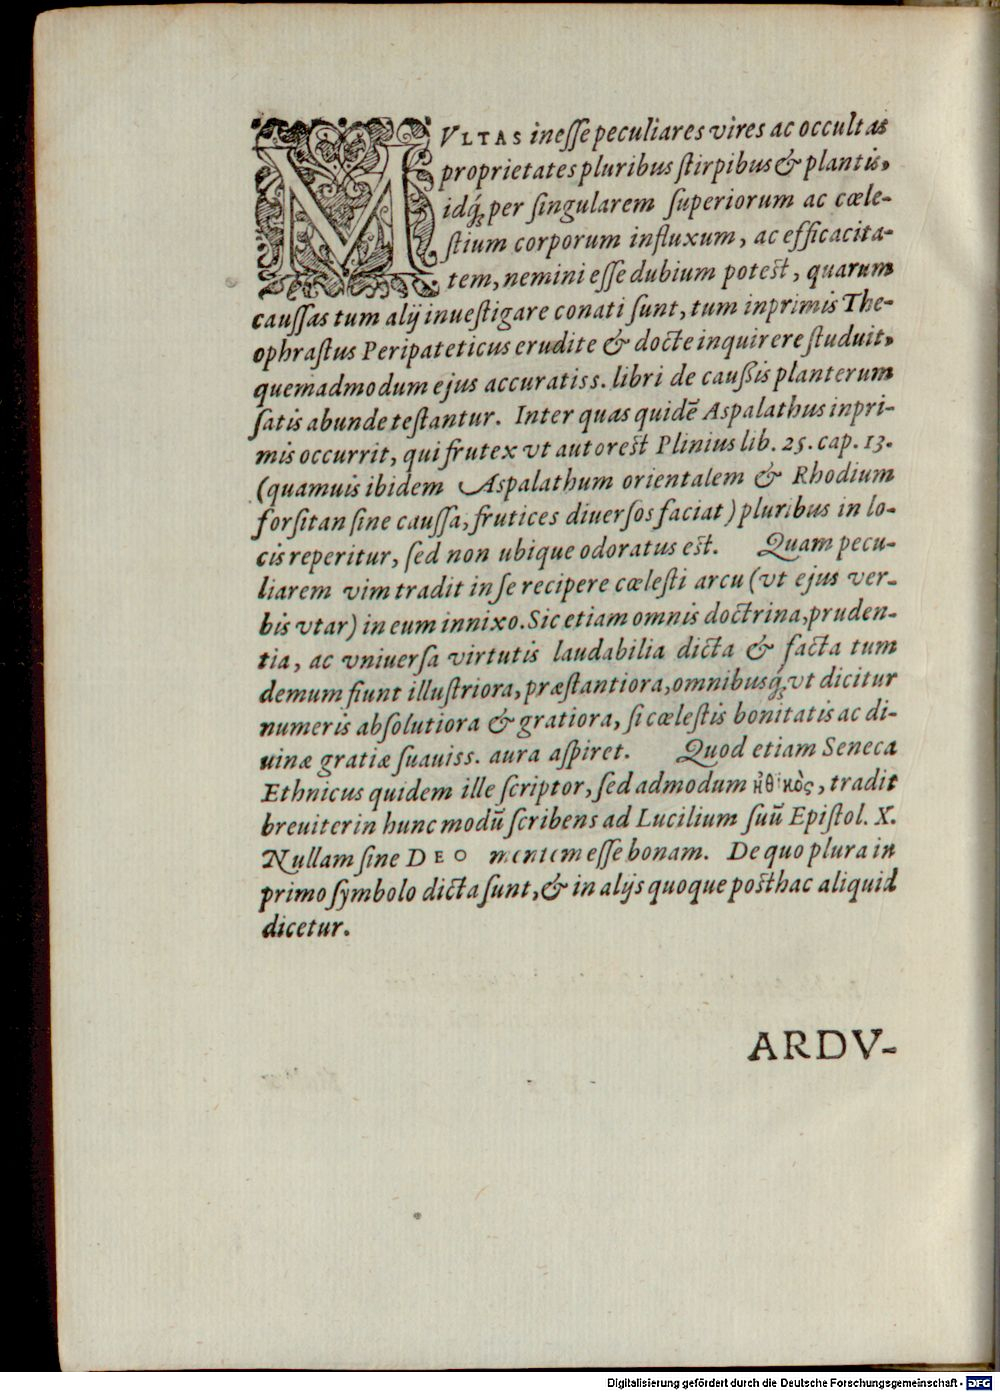 MVLTAS inesse peculiares vires ac occultas
proprietates pluribus stirpibus & plantis,
idq́; per singularem superiorum ac cœle-
stium corporum influxum, ac efficacita-
tem, nemini esse dubium potest, quarum
caussas tum alij inuestigare conati sunt, tum inprimis The-
ophrastus Peripateticus erudite & docte inquirere studuit,
quemadmodum ejus accuratiss. libri de caußis planterum
satis abunde testantur. Inter quas quidē Aspalathus inpri-
mis occurrit, qui frutex vt autor est Plinius lib. 25. cap. 13.
(quamuis ibidem Aspalathum orientalem & Rhodium
forsitan sine caussa, frutices diuersos faciat) pluribus in lo-
cis reperitur, sed non ubique odoratus est. Quam pecu-
liarem vim tradit in se recipere cœlesti arcu (vt ejus ver-
bis vtar) in eum innixo. Sic etiam omnis doctrina, pruden-
tia, ac vniuersa virtutis laudabilia dicta & facta tum
demum fiunt illustriora, præstantiora, omnibusq́; vt dicitur
numeris absolutiora & gratiora, si cœlestis bonitatis ac di-
uinæ gratiæ suauiss. aura aspiret. Quod etiam Seneca
Ethnicus quidem ille scriptor, sed admodum ἠθικὸς, tradit
breuiter in hunc modū scribens ad Lucilium suū Epistol. X.
Nullam sine DEO mentem esse bonam. De quo plura in
primo symbolo dicta sunt, & in alijs quoque posthac aliquid
dicetur.
ARDV-
Digitalisierung gefördert durch die Deutsche Forschungsgemeinschaft - DFG